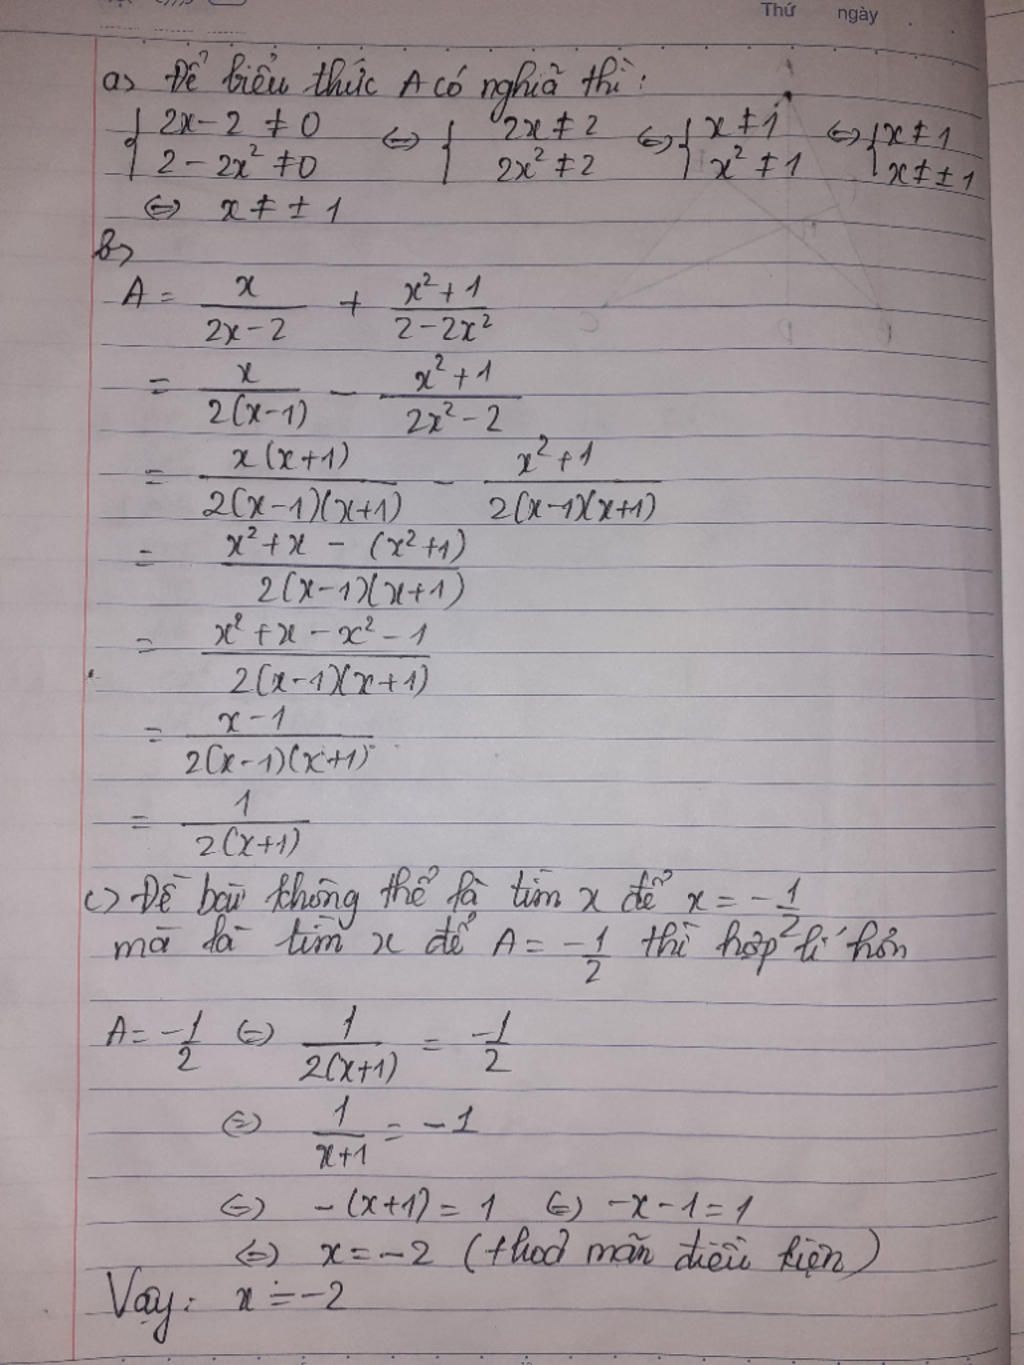 Thứ ngày
a) Để biểu thức A có nghĩa thì:
{ 2x - 2 ≠ 0 ⇔ { 2x ≠ 2 ⇔ { x ≠ 1 ⇔ { x ≠ 1
2 - 2x² ≠ 0 2x² ≠ 2 x² ≠ 1 x ≠ ± 1
⇔ x ≠ ± 1
b)
A = x/(2x - 2) + (x² + 1)/(2 - 2x²)
= x/(2(x-1)) - (x² + 1)/(2x² - 2)
= x(x+1)/(2(x-1)(x+1)) - (x² + 1)/(2(x-1)(x+1))
= (x² + x - (x² + 1))/(2(x-1)(x+1))
= (x² + x - x² - 1)/(2(x-1)(x+1))
= (x - 1)/(2(x-1)(x+1))
= 1/(2(x+1))
c) Đề bài không thể là tìm x để x = -1/2
mà là tìm x để A = -1/2 thì hợp lí hơn
A = -1/2 ⇔ 1/(2(x+1)) = -1/2
⇔ 1/(x+1) = -1
⇔ -(x+1) = 1 ⇔ -x - 1 = 1
⇔ x = -2 (thoả mãn điều kiện)
Vậy: x = -2